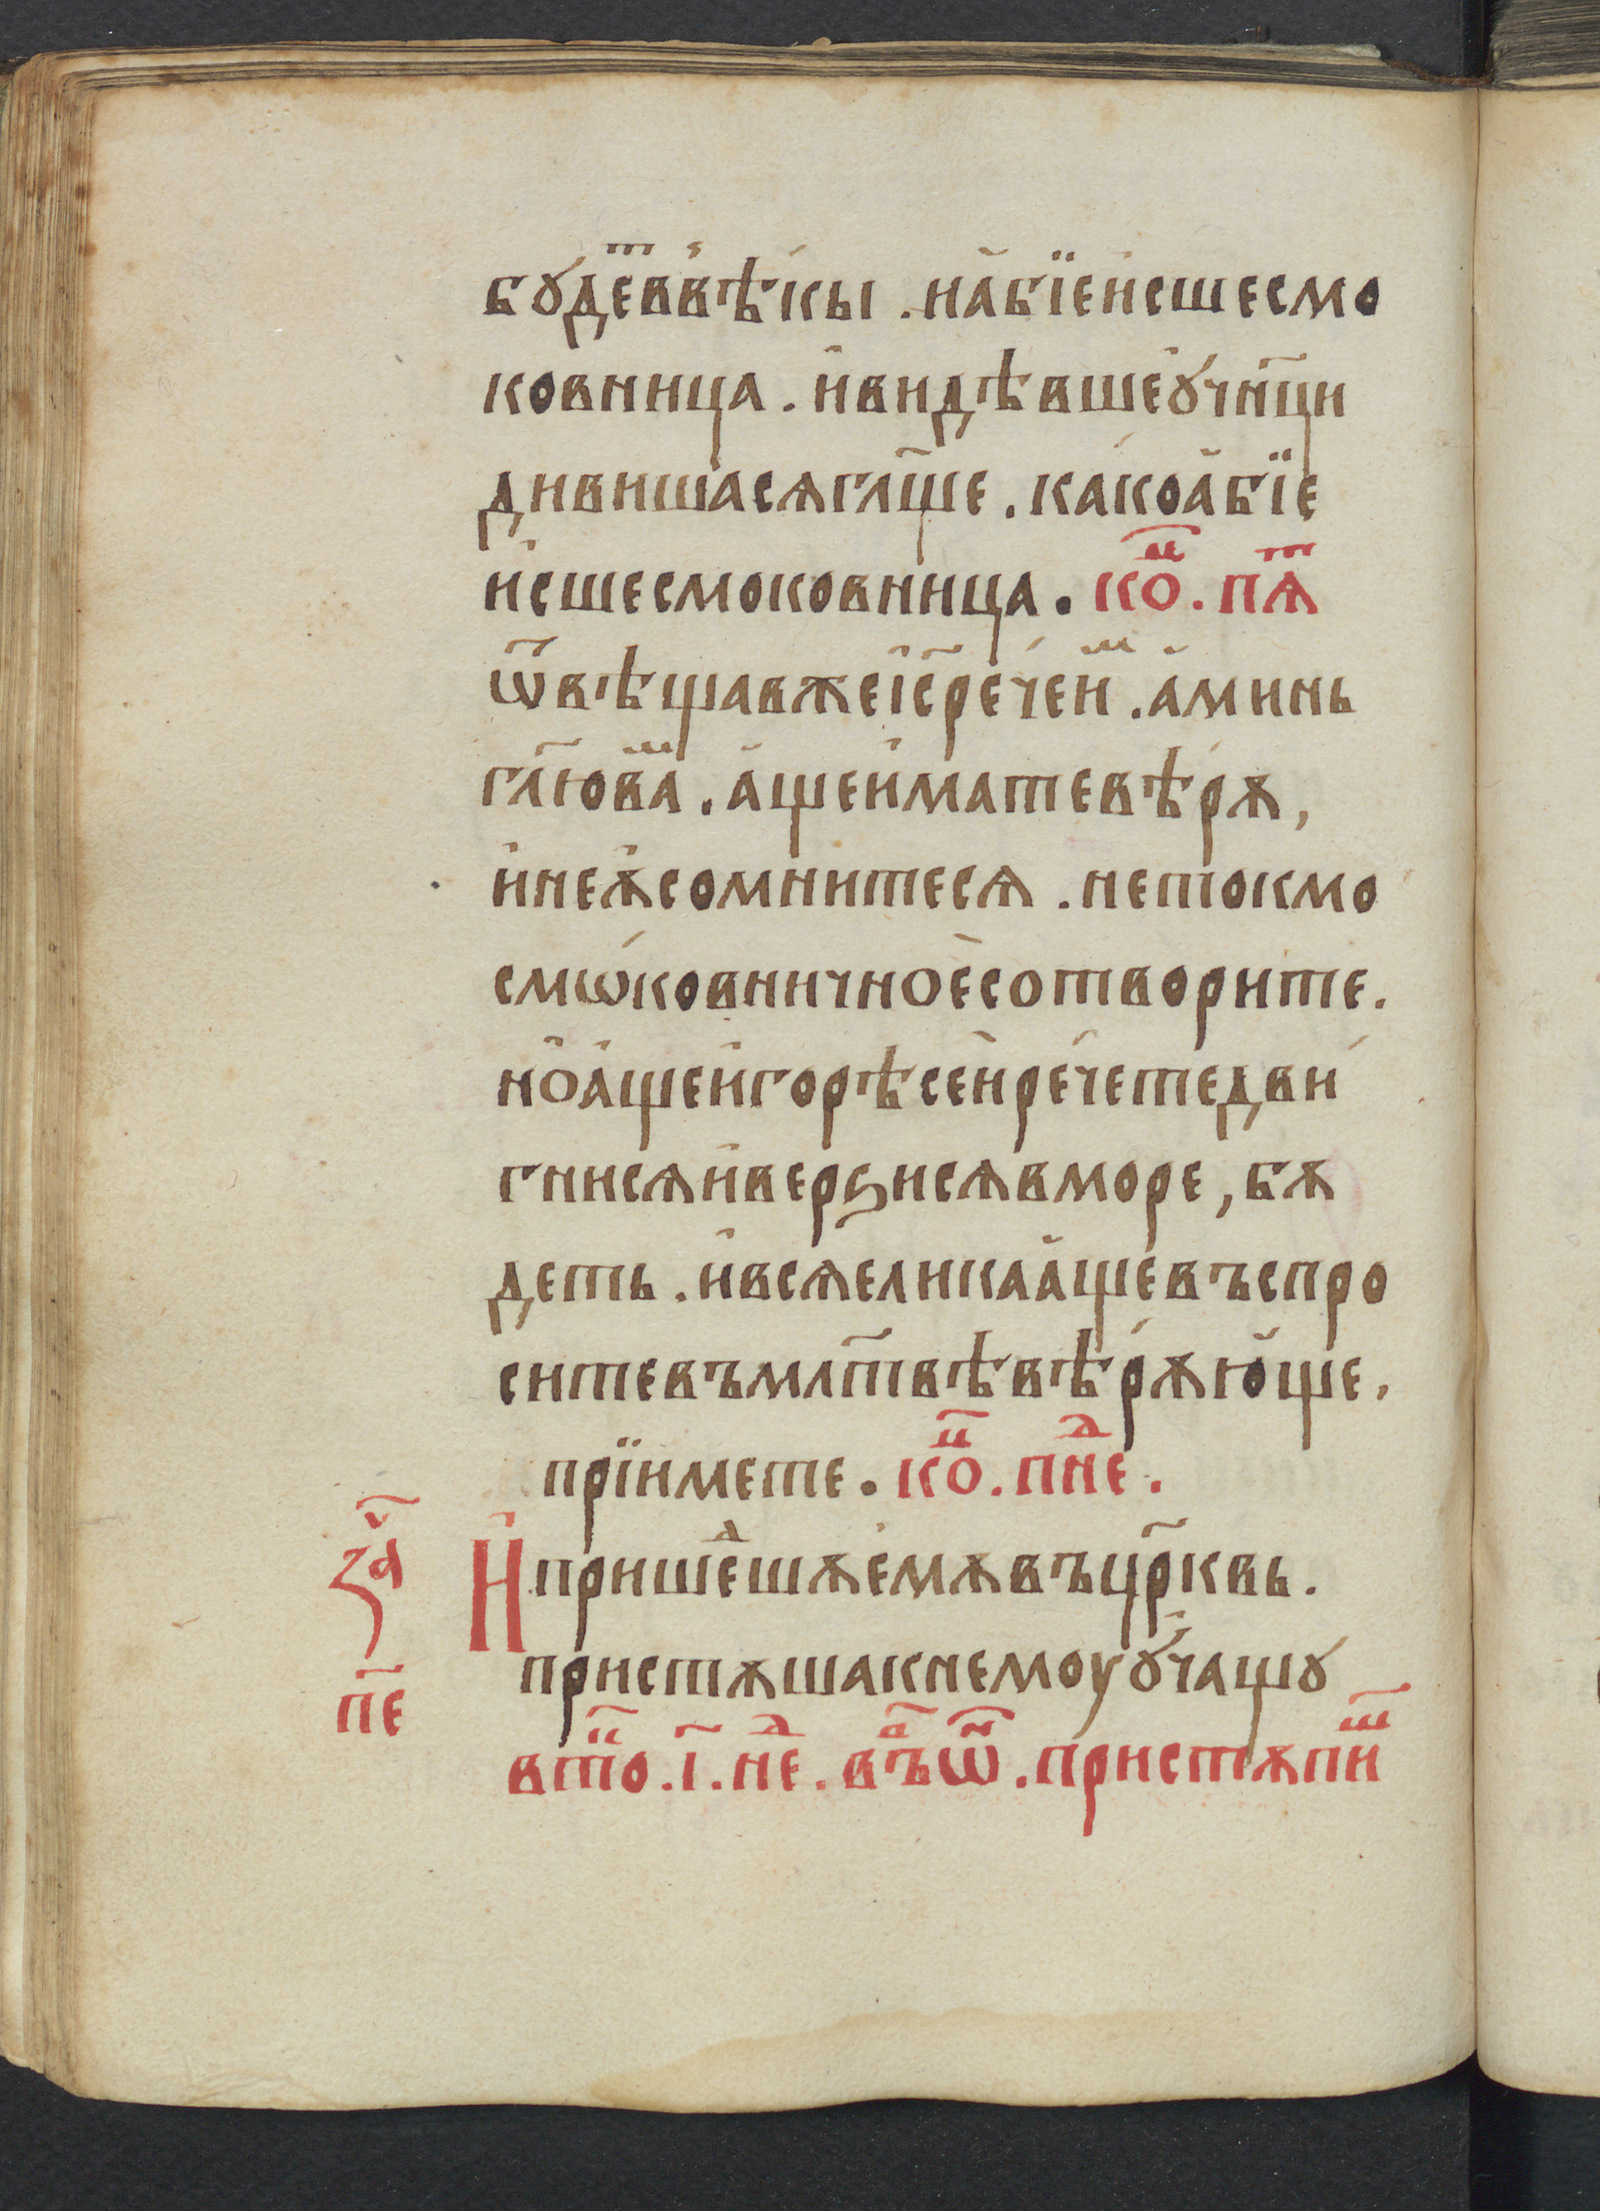 бꙋ́де́ⷮв̾вѣ́кы . и҆а҆бїеи҆сшесмо
ковница . и҆видѣвшеꙋ҆чн҃ци
дивишасѧгл҃ще . ка́коа҆бїе
и҆сшесмоковница . ко҃ⷩ . пѧ҃ⷦ
ѿвѣщавжеі҆с҃рече́и҆ⷨ . а҆минь
гл҃юваⷨ . а҆щеи҆матевѣ́рѫ ,
и҆неѫ҆сомнитесѧ . нетокмо
смѡ́ковничное҆сотворите .
но҆а҆щеи҆горѣсеи҆рече́тедви́
гнисѧи҆верѕисѧвморе , бѫ
деть . и҆всѧеликаа҆щевъспро
ситевъмлт҃вѣвѣ́рѫю҆ще .
прїимете . ко҃ⷩ . пнеⷣ .
За҃ⷱ
Ипришеⷣшѫе҆мѫвъцр҃квь .
пристѫшакнемоуꙋ҆чащꙋ
п҃е
вто҃ⷬ . і҃ . неⷣ . въⷪ҇ѿ . пристѫпиⷲ